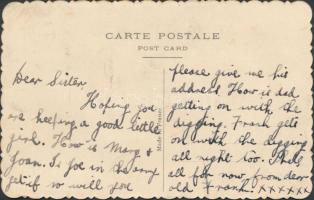 CARTE POSTALE
POST CARD
Dear Sister
Hoping you
are keeping a good little
girl. How is Mary &
Joan. Is Joe in the army
yet if so will you
Made in France
please give me his
address How is dad
getting on with the
digging. Frank gets
on with the digging
all right too. And
all for now from dear
old Frank xxxxxx